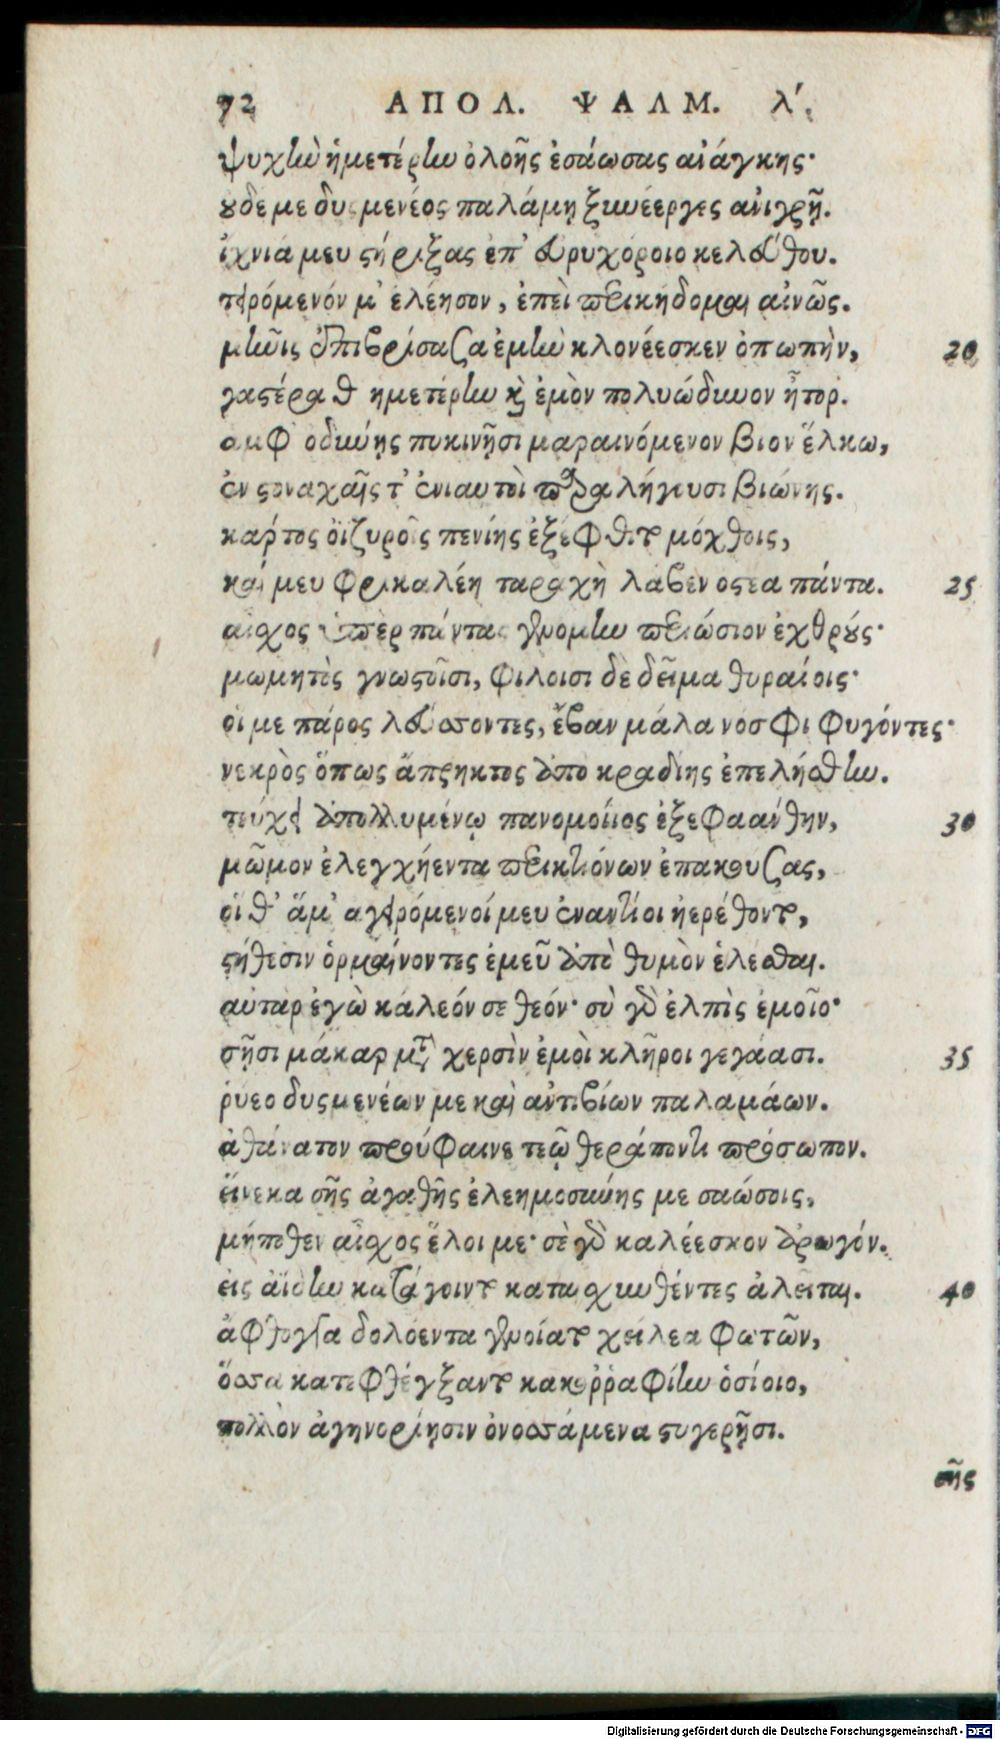 72 ΑΠΟΛ. ΨΑΛΜ. λ΄.
ψυχὴν ἡμετέρην ὀλοῆς ἐσάωσας ἀνάγκης·
οὐδέ με δυσμενέος παλάμῃ ξυνέεργες ἀνιγρῇ.
ἴχνιά μευ στήριξας ἐπ᾽ εὐρυχόροιο κελεύθου.
τειρόμενόν μ᾽ ἐλέησον, ἐπεὶ περικήδομαι αἰνῶς.
μῆνις ἐπιβρίσασα ἐμὴν κλονέεσκεν ὀπωπὴν, 20
γαστέρα θ᾽ ἡμετέρην καὶ ἐμὸν πολυώδυνον ἦτορ.
ἀμφ᾽ ὀδύνῃς πυκινῇσι μαραινόμενον βίον ἕλκω,
ἐν στοναχαῖς τ᾽ ἐνιαυτοὶ παραλήγουσι βιώνης.
κάρτος ὀϊζυροῖς πενίης ἐξέφθιτο μόχθοις,
καί μευ φρικαλέη ταραχὴ λάβεν ὀστέα πάντα. 25
αἶσχος ὑπὲρ πάντας γενόμην περιώσιον ἐχθρούς·
μωμητὸς γνωστοῖσι, φίλοισι δὲ δεῖμα θυραίοις·
οἵ με πάρος λεύσσοντες, ἔβαν μάλα νόσφι φυγόντες·
νεκρὸς ὅπως ἄπρηκτος ἀπὸ κραδίης ἐπελήσθην.
τεύχει ἀπολλυμένῳ πανομοίϊος ἐξεφαάνθην,
30
μῶμον ἐλεγχήεντα περικτιόνων ἐπακούσας,
οἵ θ᾽ ἅμ᾽ ἀγειρόμενοί μευ ἐναντίοι ἠερέθοντο,
στήθεσιν ὁρμαίνοντες ἐμεῦ ἀπὸ θυμὸν ἑλέσθαι.
αὐτὰρ ἐγὼ κάλεόν σε θεόν· σὺ γὰρ ἐλπὶς ἐμοῖο·
σῇσι μάκαρ μετὰ χερσὶν ἐμοὶ κλῆροι γεγάασι. 35
ῥύεο δυσμενέων με καὶ ἀντιβίων παλαμάων.
ἀθάνατον προύφαινε τεῷ θεράποντι πρόσωπον.
εἵνεκα σῆς ἀγαθῆς ἐλεημοσύνης με σαώσοις,
μήποθεν αἶσχος ἕλοι με· σὲ γὰρ καλέεσκον ἀρωγόν.
εἰς ἀΐδην κατάγοιντο καταισχυνθέντες ἀλεῖται. 40
ἄφθογγα δολόεντα γενοίατο χείλεα φωτῶν,
ὅσσα κατεφθέγξαντο κακοῤῥαφίην ὁσίοιο,
πολλὸν ἀγηνορίῃσιν ὀνοσσάμενα στυγερῇσι.
σῆς
Digitalisierung gefördert durch die Deutsche Forschungsgemeinschaft - DFG